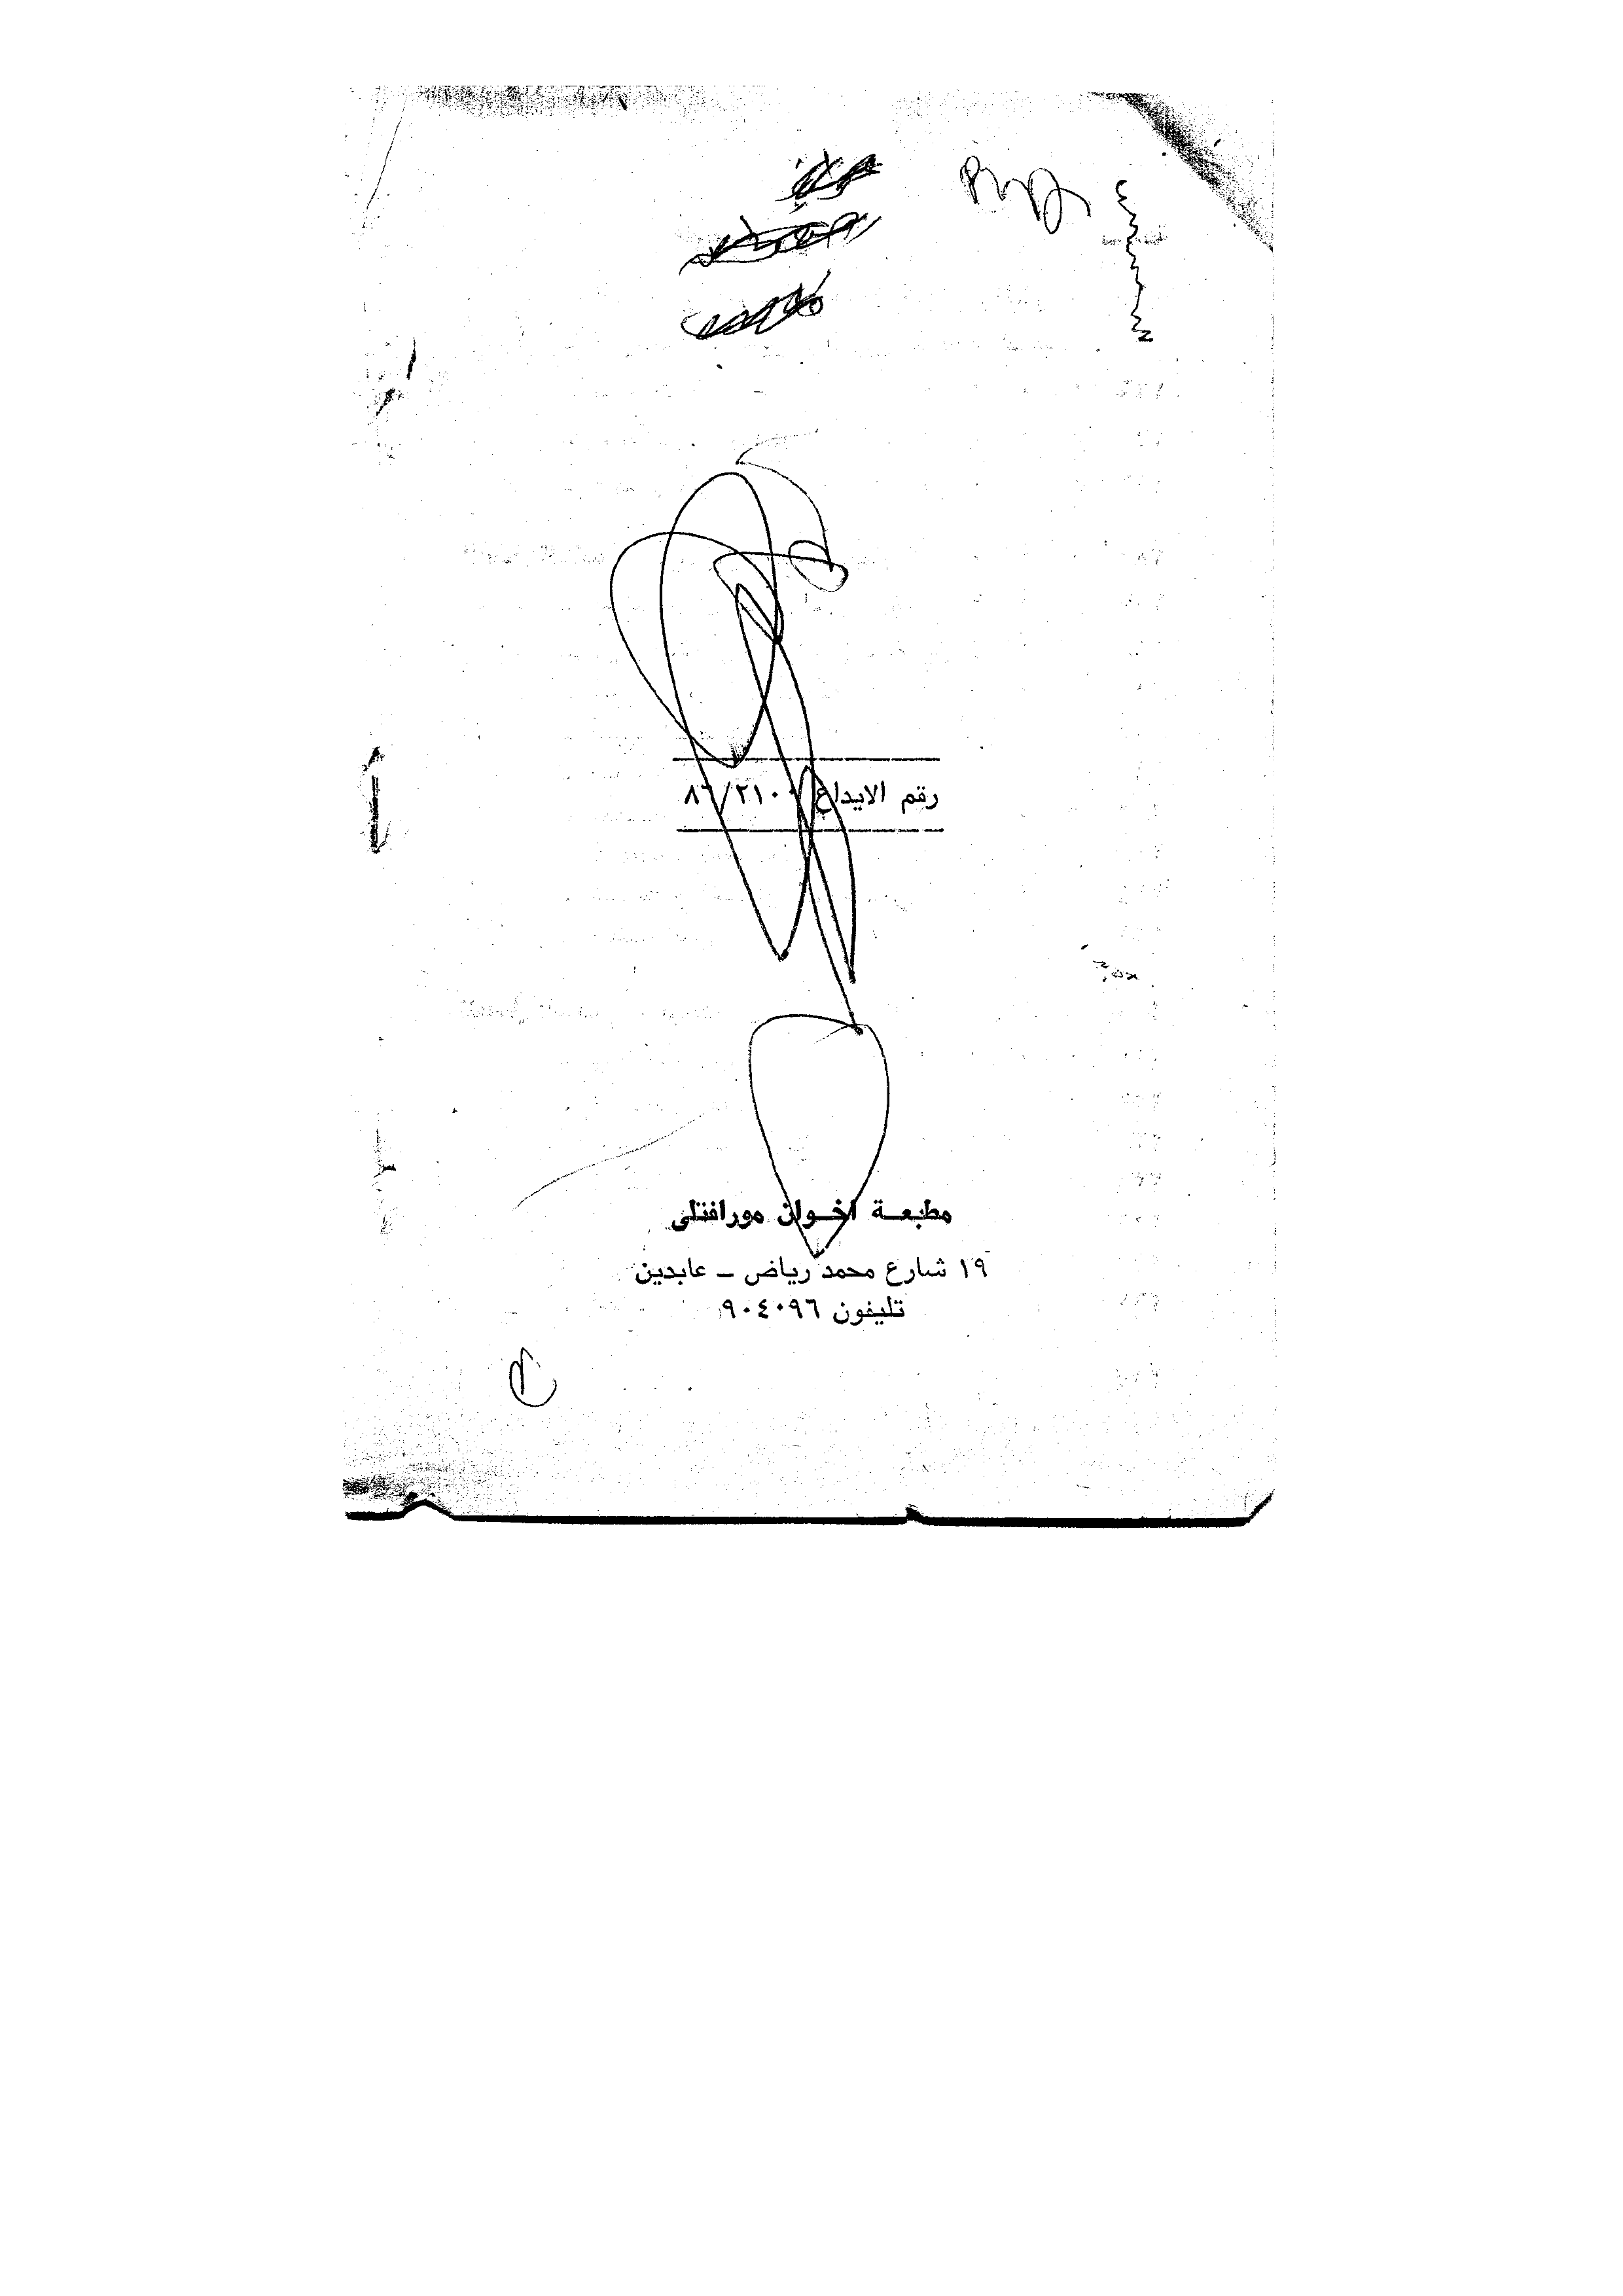 رقم الايداع ٨٦/٢١٠٠
مطبعـة اخـوان مورافتلى
١٩ شارع محمد رياض ـ عابدين
تليفون ٩٠٤٠٩٦